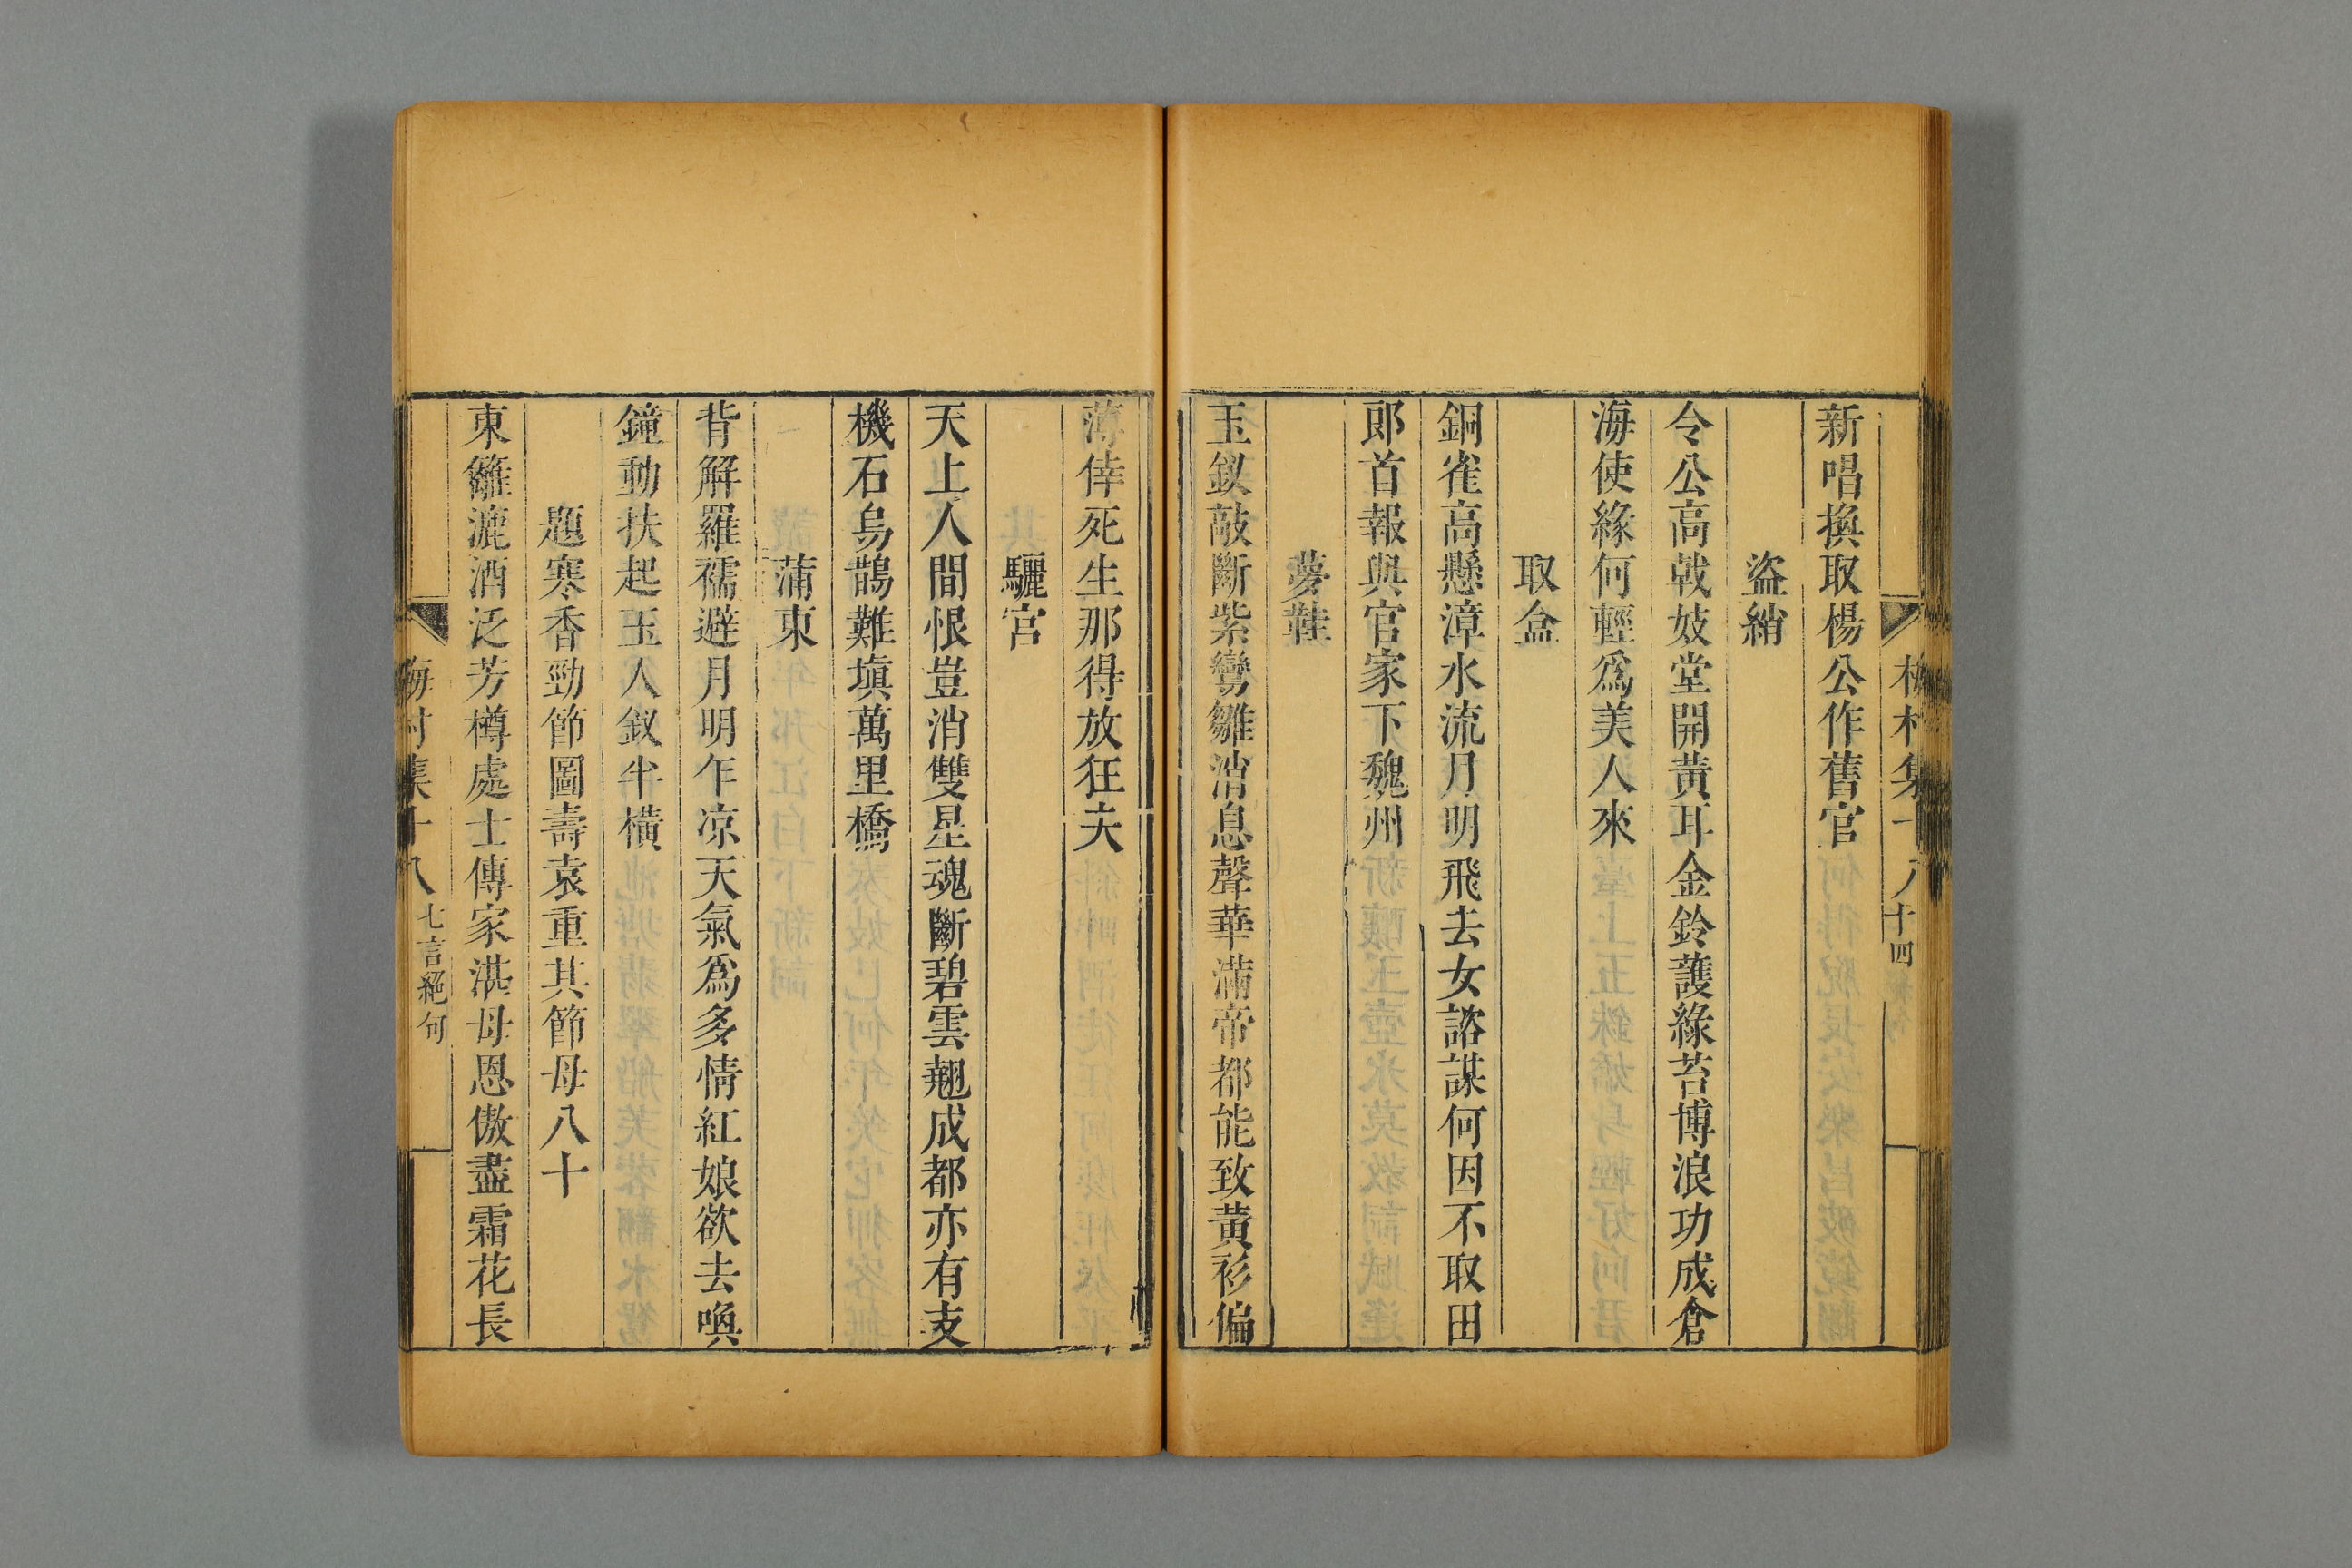 梅村集十八 十四
新唱換取楊公作舊官
盜綃
令公高戟妓堂開黃耳金鈴護綠苔博浪功成倉
海使緣何輕爲美人來
取盒
銅雀高懸漳水流月明飛去女諮謀何因不取田
郎首報與官家下魏州
夢鞋
玉釵敲斷紫鸞雛消息聲華滿帝都能致黃衫偏
薄倖死生那得放狂夫
驪宮
天上人間恨豈消雙星魂斷碧雲翹成都亦有支
機石烏鵲難塡萬里橋
蒲東
背解羅襦避月明乍凉天氣爲多情紅娘欲去喚
鐘動扶起玉人釵半橫
題寒香勁節圖壽袁重其節母八十
東籬漉酒泛芳樽處士傳家湛母恩傲盡霜花長
梅村集十八 七言絕句